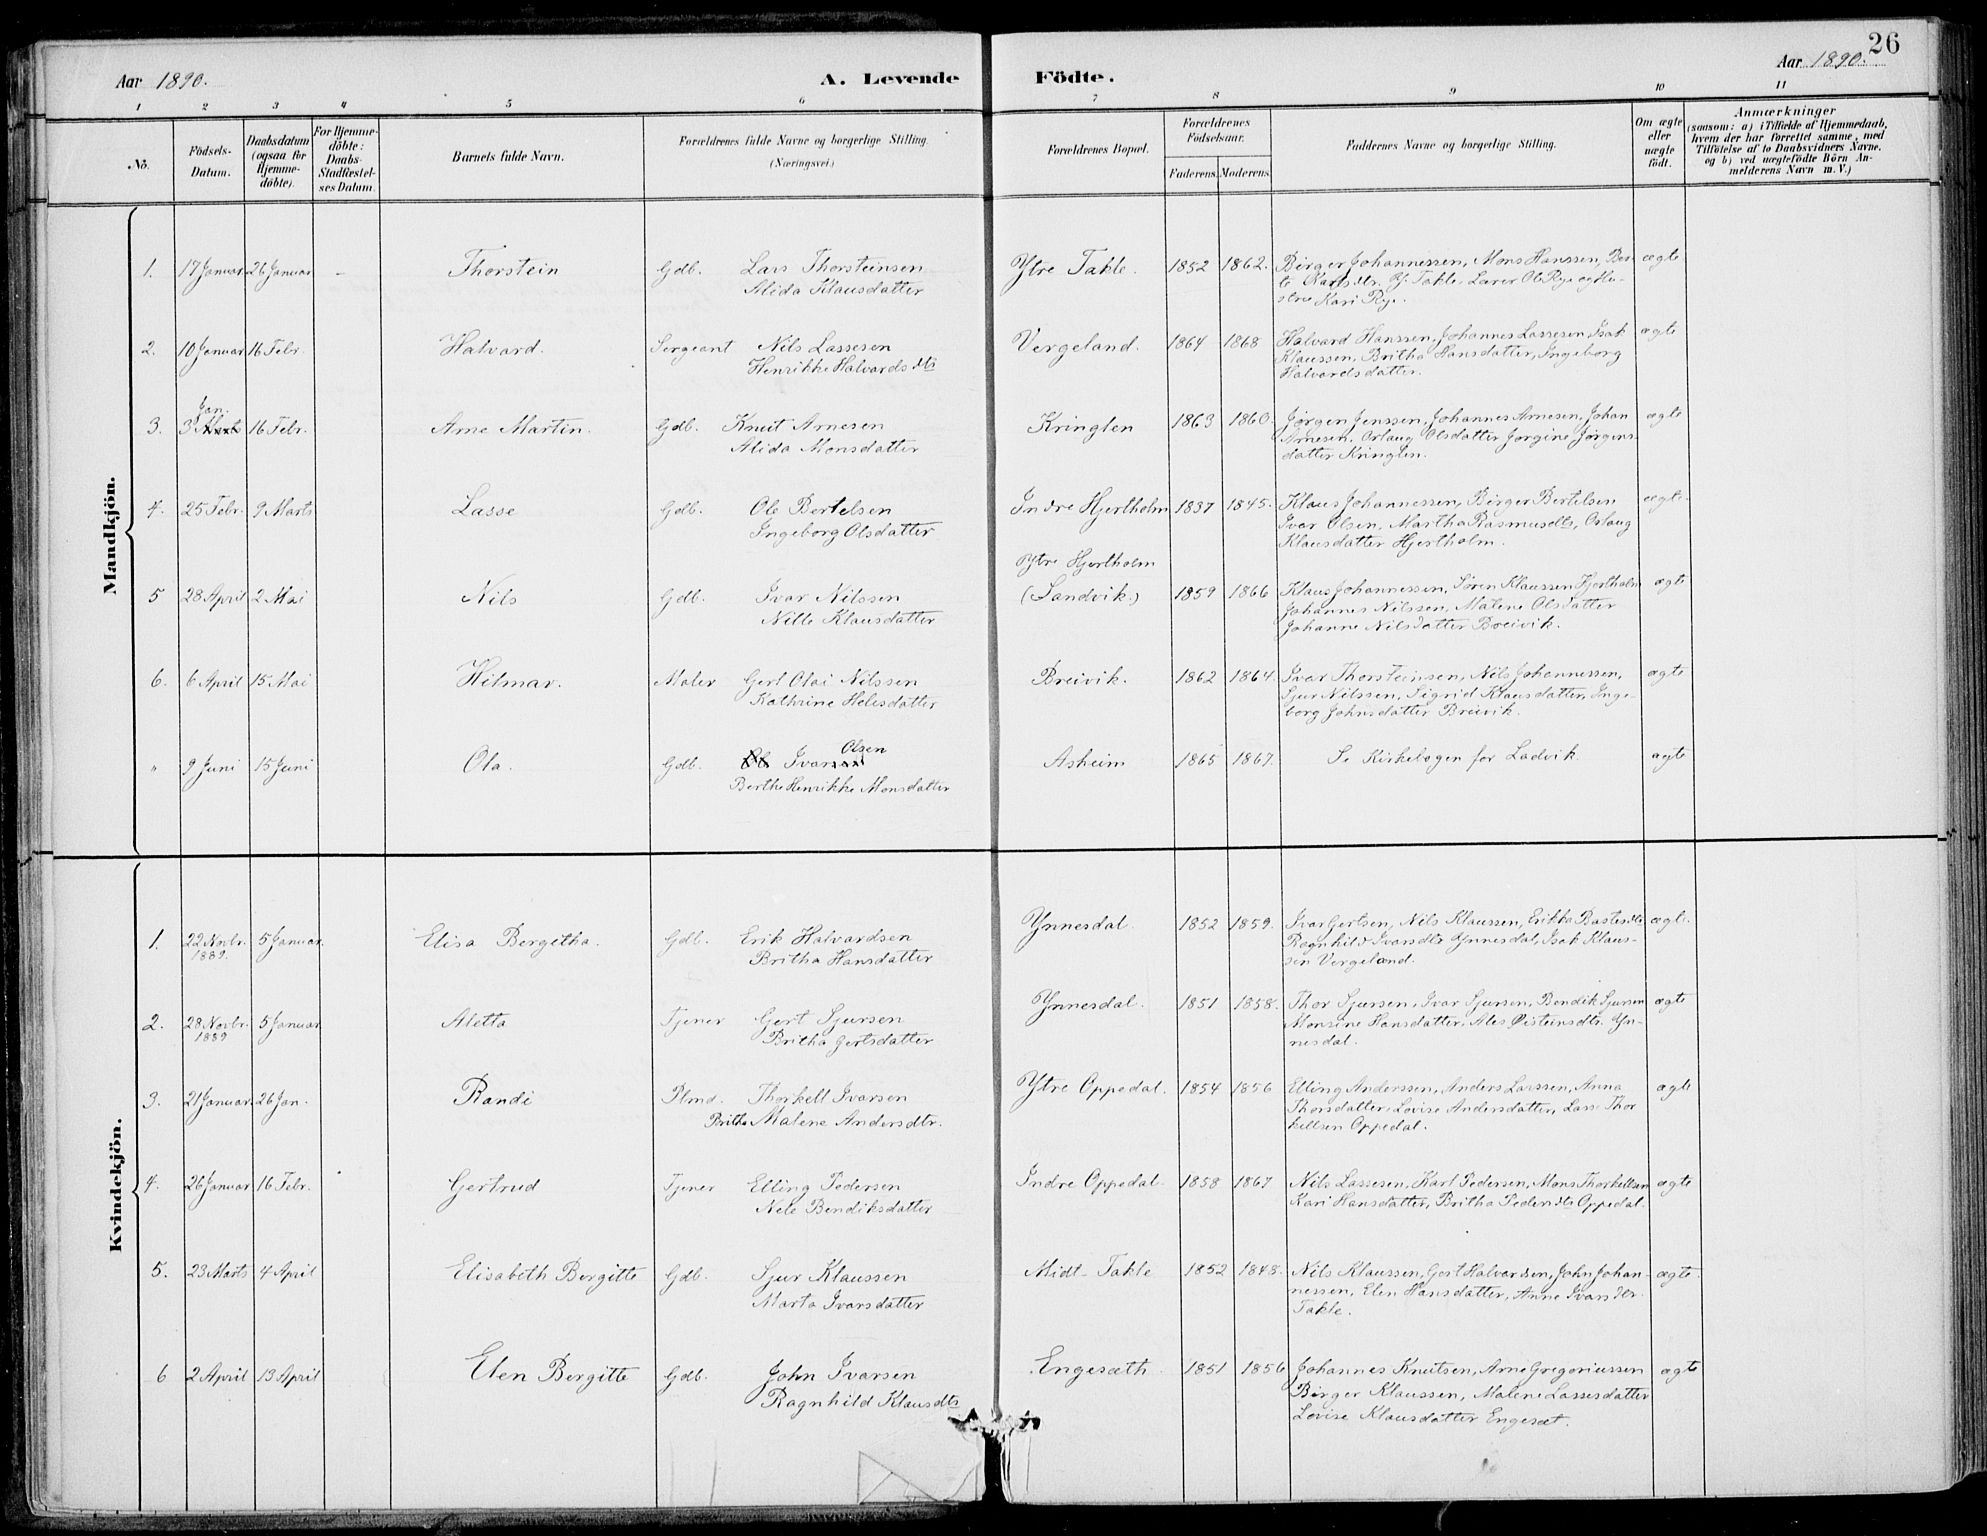 26
Aar 1890. A. Levende Födte. Aar 1890.
1 2 3 4 5 6 7 8 9 10 11
No. Födsels-Datum. Daabsdatum (ogsaa for Hjemme-döbte). For Hjemme-döbte: Daabs-Stadfæstel-ses Datum. Barnets fulde Navn. Forældrenes fulde Navne og borgerlige Stilling. (Næringsvei.) Forældrenes Bopæl. Forældrenes Födselsaar. Faderens. Moderens. Faddernes Navne og borgerlige Stilling. Om ægte eller uægte födt. Anmærkninger (saasom: a) i Tilfælde af Hjemmedaab, hvem der har forrettet samme, med Tilföielse af to Daabsvidners Navne, og b) ved uægtefödte Börn An-melderens Navn m. V.)
Mandkjön.
1. 17 Januar 26 Januar - Thorstein Gdb. Lars Thorsteinsen Ytre Takle. 1852 1862. Børger Johannessen, Mons Hanssen, Ber- ægte
Alida Klausdatter te Karlsdtr. Y. Takle, Lærer Ole Rye og Hu-
stru Kari Rye.
2. 10 Januar 16 Febr. Halvard. Sergeant Nils Lassesen Vergeland. 1864 1868 Halvard Hanssen, Johannes Lassesen, Isak ægte
Henrikke Halvardsdtr Klaussen, Britha Hansdatter, Ingeborg
Halvardsdatter.
Jan.
3. 3 Marts 16 Febr. Arne Martin. Gdb. Knut Arnesen Kringlen 1863 1860. Jørgen Jenssen, Johannes Arnesen, Johan ægte
Alida Monsdatter Arnesen, Orlaug Olsdatter Jørgine Jørgens-
datter Kringlen.
4. 25 Febr. 9 Marts Lasse Gdb. Ole Bertelsen Indre Hjertholm 1837 1845. Klaus Johannessen, Børger Bertelsen ægte
Ingeborg Olsdatter Ivar Olsen, Martha Rasmusdtr, Orlaug
Klausdatter Hjertholm.
Ytre Hjertholm
5 28 April 2 Mai Nils Gdb. Ivar Nilssen (Sandvik.) 1859 1866 Klaus Johannessen, Søren Klaussen Hjertholm ægte
Nille Klausdatter Johannes Nilssen, Malene Olsdatter
Johanne Nilsdatter Breivik.
6. 6 April 15 Mai Hilmar. Maler Gert Olai Nilssen Breivik. 1862 1864. Ivar Thorsteinsen, Nils Johannessen, ægte
Kathrine Helesdatter Sjur Nilssen, Sigrid Klausdatter, Inge-
borg Johnsdatter Breivik.
Olsen
" 9 Juni 15 Juni Ola. Gdb. Ole Ivarsen Asheim 1865 1867. Se Kirkebogen for Ladvik. ægte
Berthe Henrikke Monsdatter
Kvindekjön.
1. 22 Novbr. 5 Januar. Elisa Bergitha. Gdb. Erik Halvardsen Ynnesdal. 1852 1859. Ivar Gertsen, Nils Klaussen, Erikka Bastesdtr ægte.
1889. Britha Hansdatter Ragnhild Ivarsdtr Ynnesdal, Isak Klaus-
sen Vergeland.
2. 28 Novbr. 5 Januar Aletta Tjener Gert Sjursen Ynnesdal. 1851 1858. Thor Sjursen, Ivar Sjursen, Bendik Sjursen ægte
1889 Britha Gertsdatter Monsine Hansdatter, Ales Øisteinsdtr. Yn-
nesdal.
3. 21 Januar 26 Jan. Randi Plmd. Thorkell Ivarsen Ytre Oppedal. 1854 1856 Elling Anderssen, Anders Larssen, Anna ægte
Britha Malene Andersdtr. Thorsdatter, Lovise Andersdatter, Lars Thor
kellsen Oppedal.
4. 26 Januar 16 Febr. Gertrud Tjener Elling Pedersen Indre Oppedal. 1858 1867 Nils Lassesen, Karl Pedersen, Mons Thorkellsen ægte
Nele Bendiksdatter Kari Hansdatter, Britha Pedersdtr Oppedal.
5. 23 Marts 4 April Elisabeth Bergitte Gdb. Sjur Klaussen Midt-Takle 1852 1848. Nils Klaussen, Gert Halvardsen, John Johan- ægte.
Marta Ivarsdatter nessen, Elen Hansdatter, Anne Ivarsdtr.
Takle.
6 2 April 13 April Elen Bergitte Gdb. John Ivarsen Engesæth. 1851 1856 Johannes Knutsen, Arne Gregoriussen ægte
Ragnhild Klausdtr Børger Klaussen, Malene Lassesdatter
Lovise Klausdatter Engesæt.